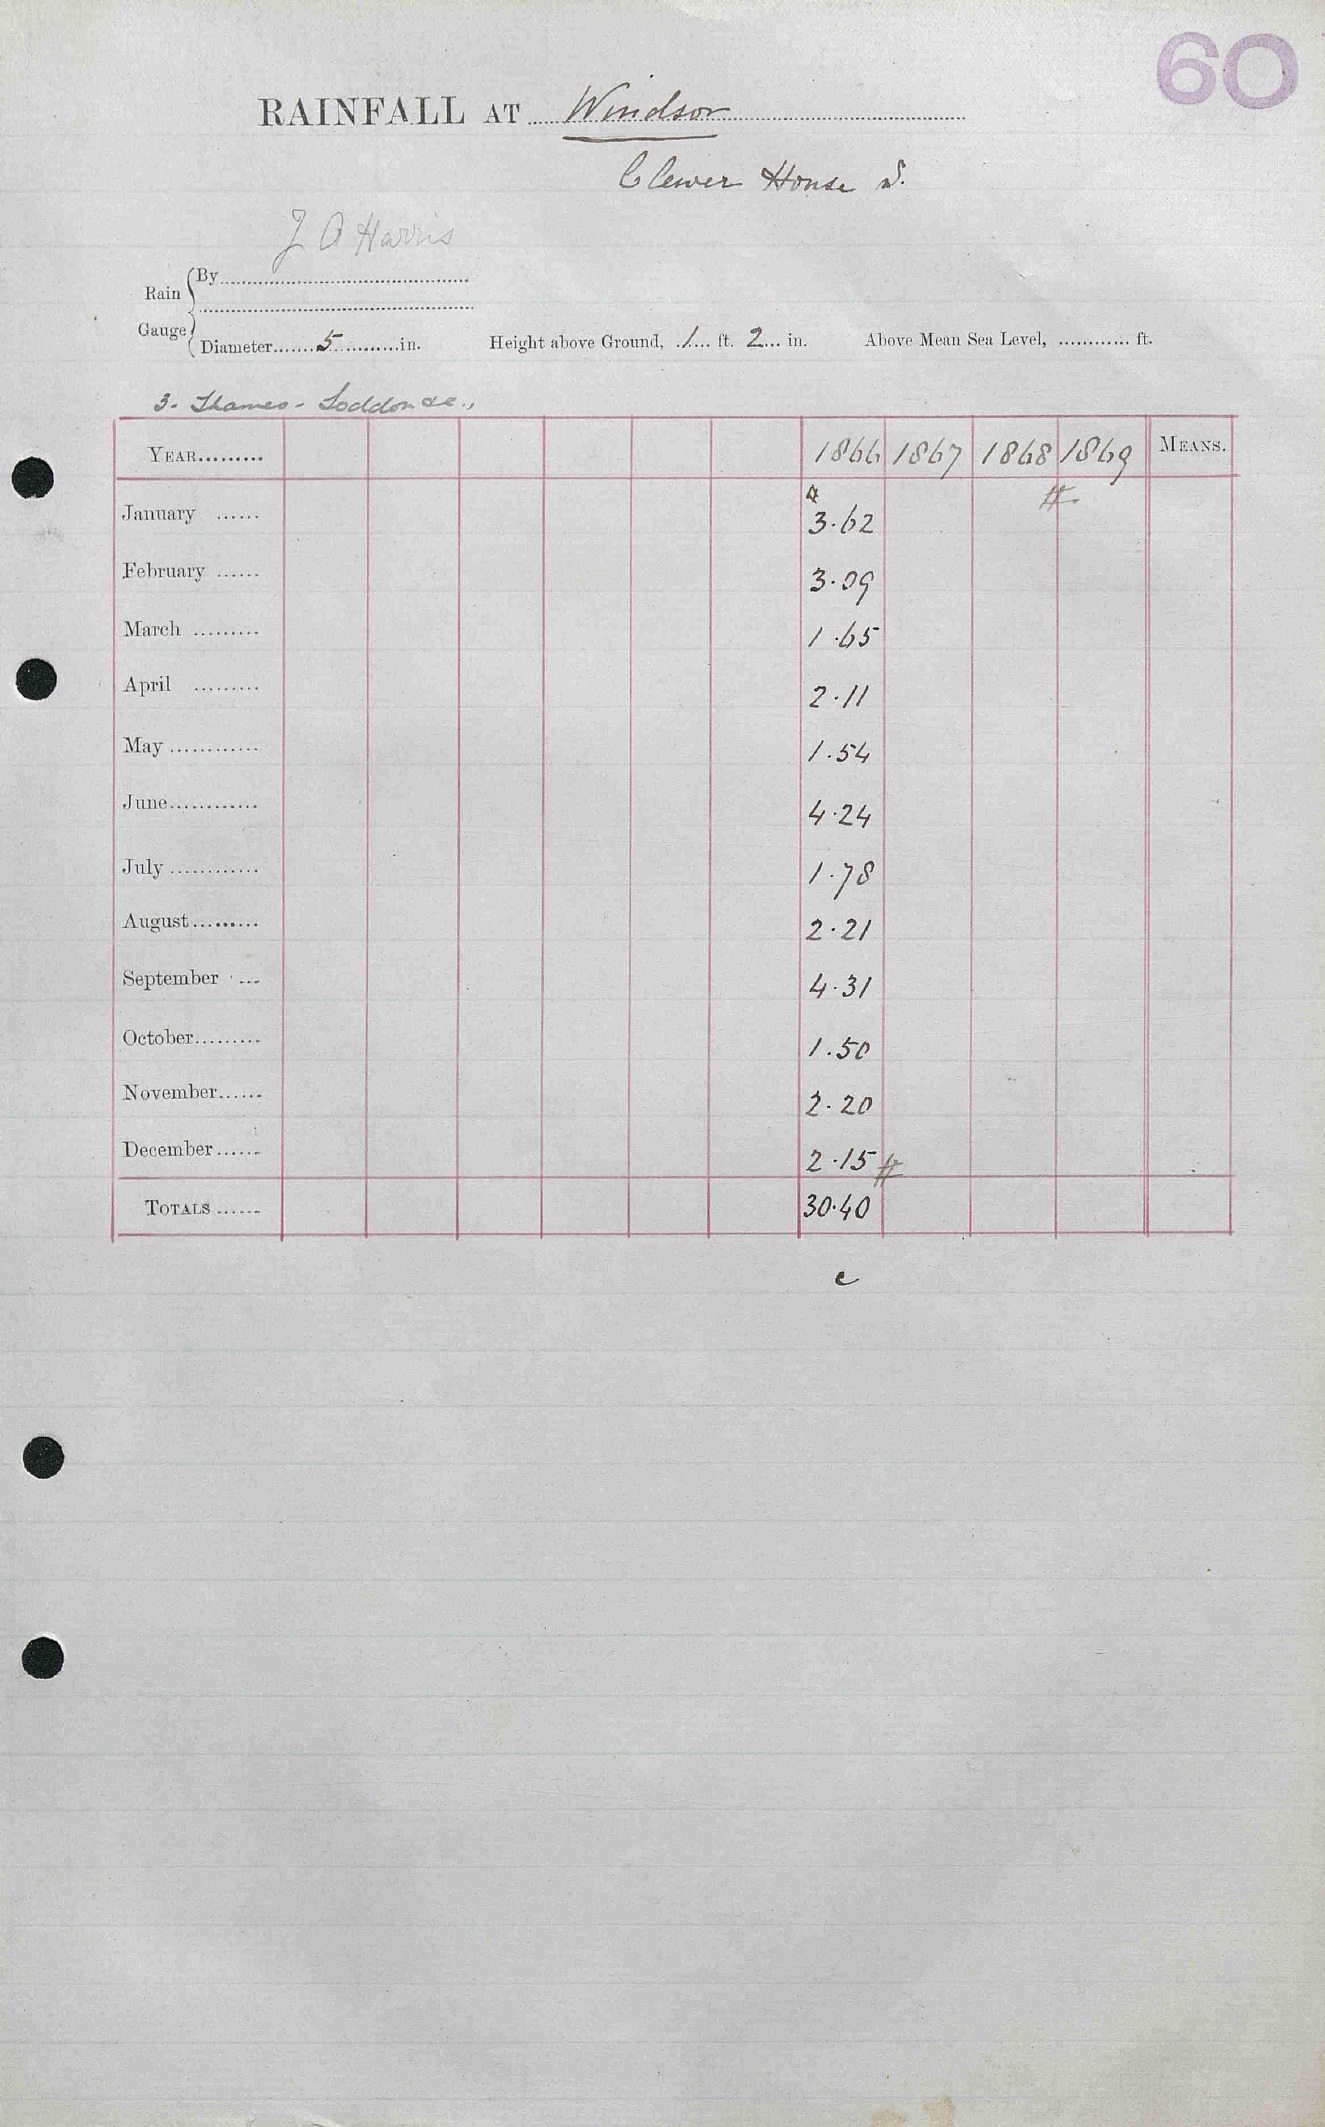 60
RAINFALL AT Windsor
Clewer House S.
J A Harris
Rain Gauge
By
Diameter 5 in. Height above Ground, 1 ft. 2 in. Above Mean Sea Level, ft.
3. Thames - Loddon &c.,
YEAR 1866 1867 1868 1869 MEANS.
#
January 3.62
February 3.09
March 1.65
April 2.11
May 1.54
June 4.24
July 1.78
August 2.21
September 4.31
October 1.50
November 2.20
December 2.15 #
TOTALS 30.40
c